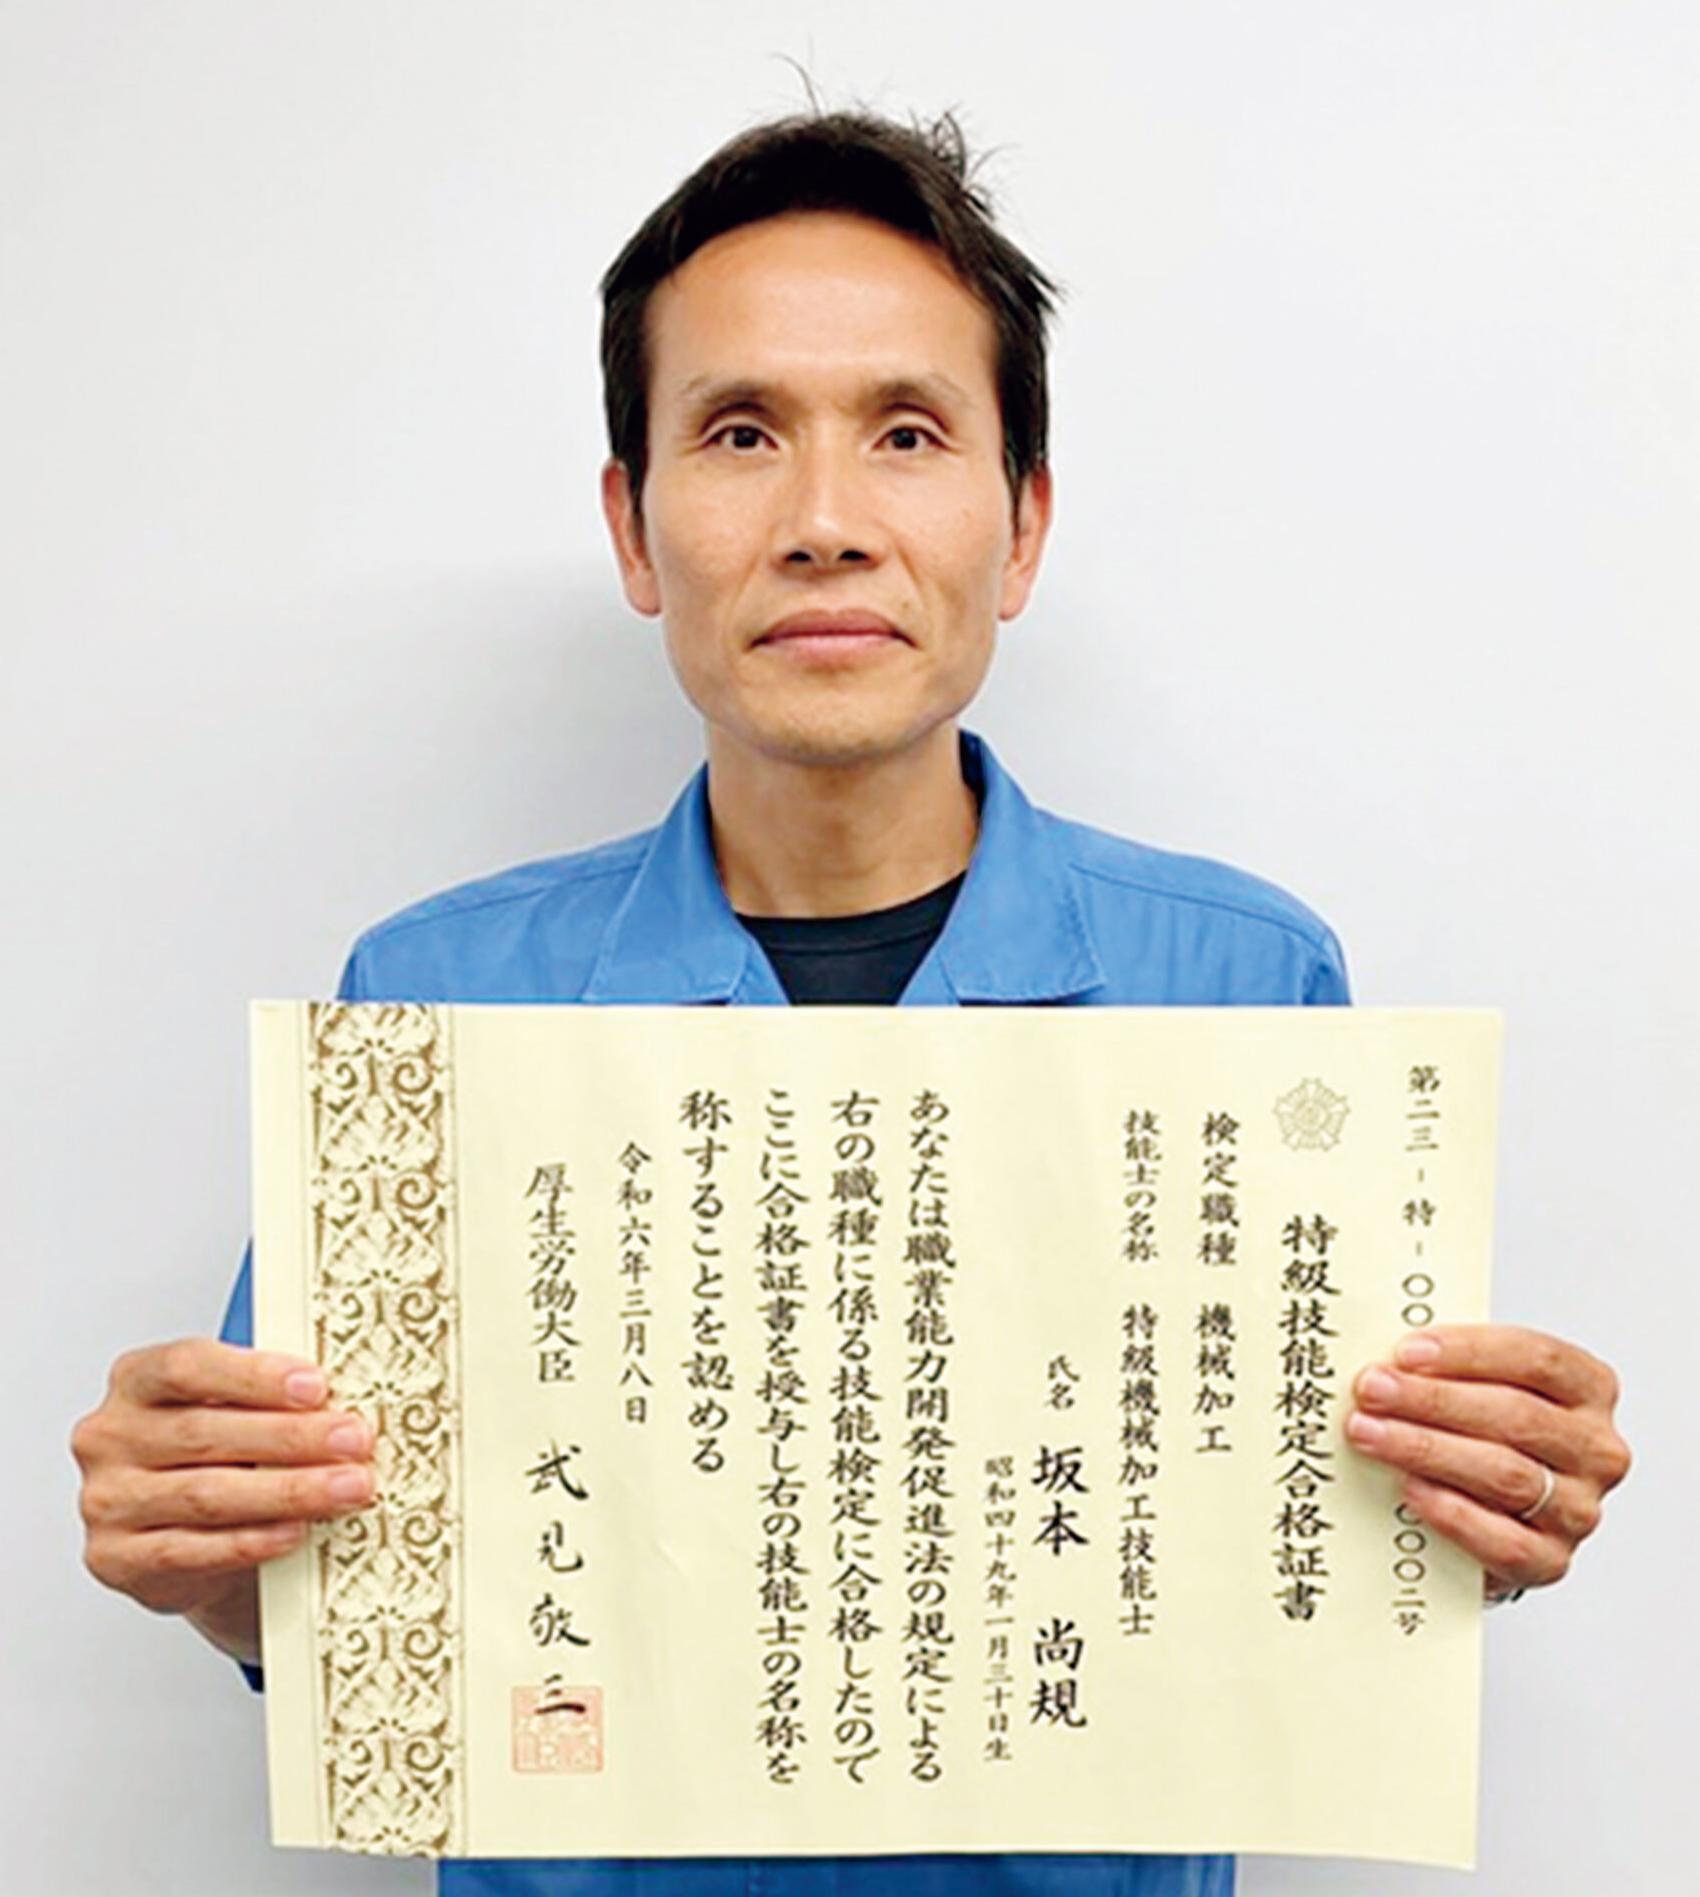 第二三-特-〇〇
〇〇〇二号
特級技能検定合格証書
検定職種 機械加工
技能士の名称 特級機械加工技能士
氏名 坂本 尚規
昭和四十九年一月三十日生
あなたは職業能力開発促進法の規定による
右の職種に係る技能検定に合格したので
ここに合格証書を授与し右の技能士の名称を
称することを認める
令和六年三月八日
厚生労働大臣 武見敬三